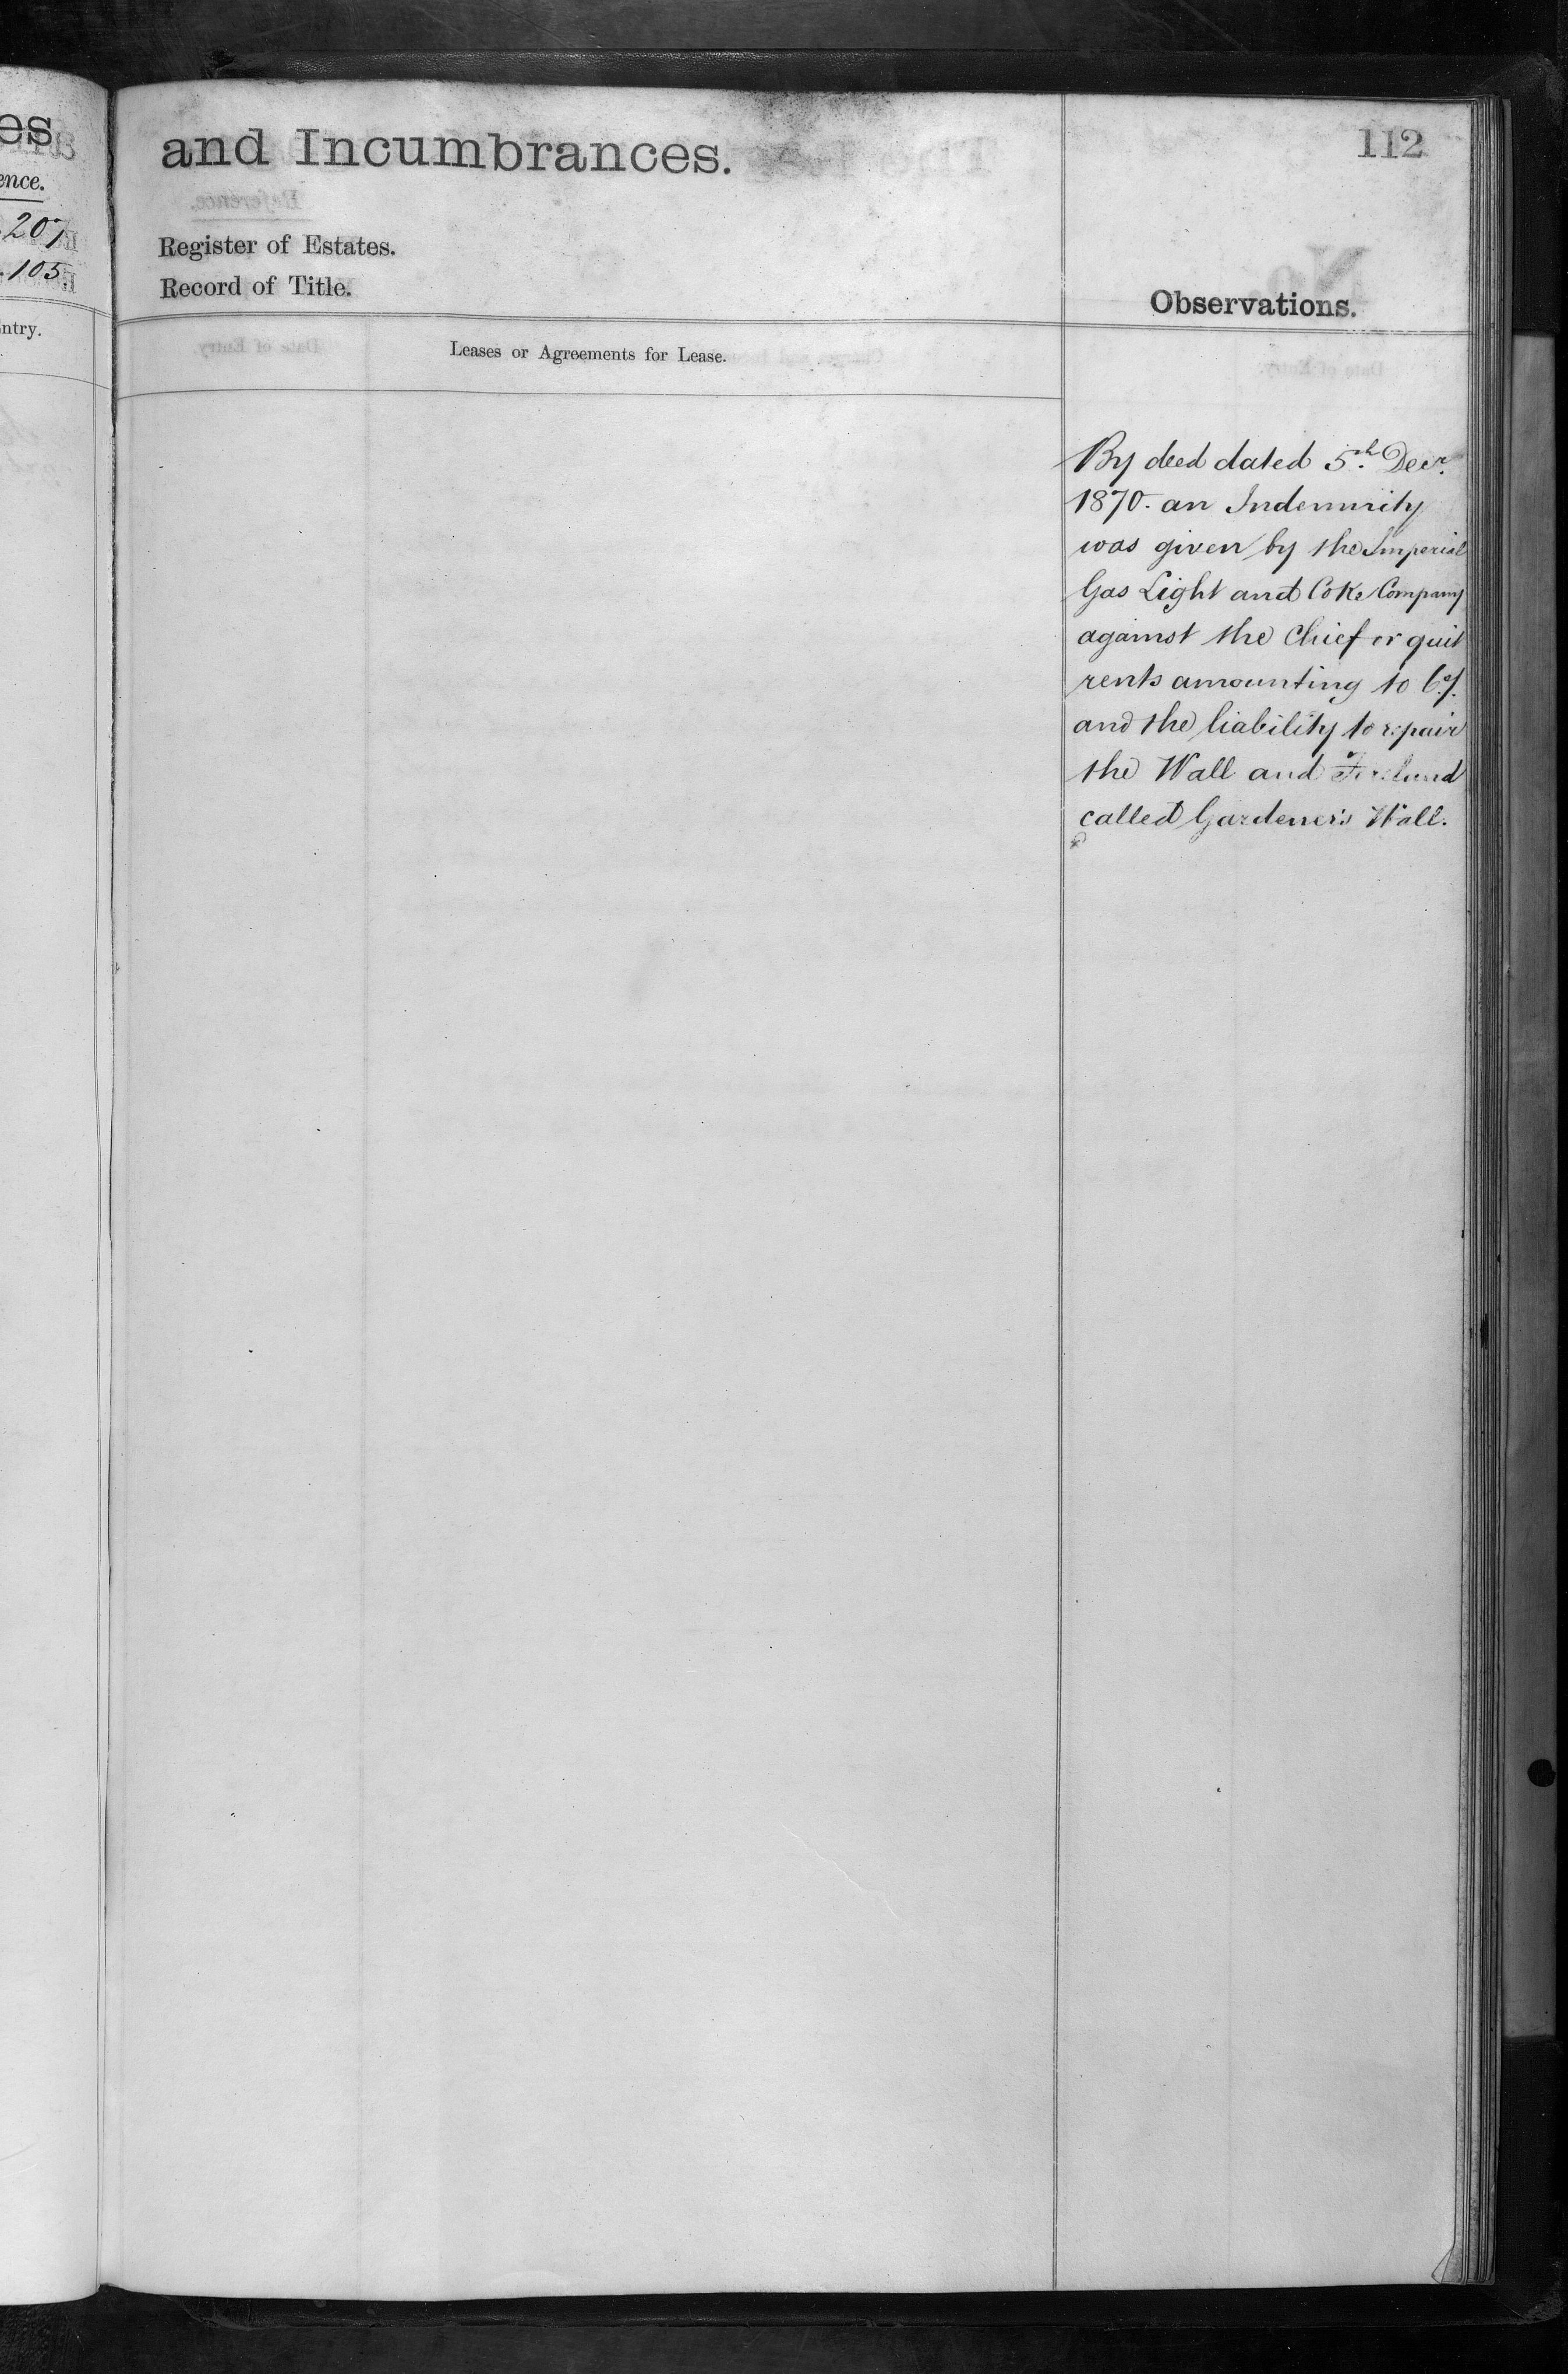 es
ence.
207
105
ntry.
and Incumbrances.
112
Register of Estates.
Record of Title.
Observations.
Leases or Agreements for Lease.
By deed dated 5th Decr.
1870. an Indemnity
was given by the Imperial
Gas Light and Coke Company
against the Chief or quit
rents amounting to
and the liability to repair
the Wall and Foreland
called Gardener's Wall.